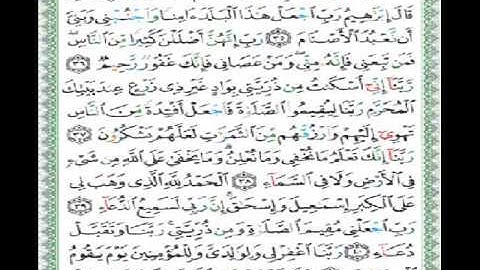 قَالَ إِبْرَٰهِيمُ رَبِّ ٱجْعَلْ هَٰذَا ٱلْبَلَدَ ءَامِنًا وَٱجْنُبْنِى وَبَنِىَّ
أَن نَّعْبُدَ ٱلْأَصْنَامَ ٣٥ رَبِّ إِنَّهُنَّ أَضْلَلْنَ كَثِيرًا مِّنَ ٱلنَّاسِ
فَمَن تَبِعَنِى فَإِنَّهُۥ مِنِّى وَمَنْ عَصَانِى فَإِنَّكَ غَفُورٌ رَّحِيمٌ ٣٦
رَّبَّنَآ إِنِّىٓ أَسْكَنتُ مِن ذُرِّيَّتِى بِوَادٍ غَيْرِ ذِى زَرْعٍ عِندَ بَيْتِكَ
ٱلْمُحَرَّمِ رَبَّنَا لِيُقِيمُوا۟ ٱلصَّلَوٰةَ فَٱجْعَلْ أَفْـِٔدَةً مِّنَ ٱلنَّاسِ
تَهْوِىٓ إِلَيْهِمْ وَٱرْزُقْهُم مِّنَ ٱلثَّمَرَٰتِ لَعَلَّهُمْ يَشْكُرُونَ ٣٧
رَبَّنَآ إِنَّكَ تَعْلَمُ مَا نُخْفِى وَمَا نُعْلِنُ وَمَا يَخْفَىٰ عَلَى ٱللَّهِ مِن شَىْءٍ
فِى ٱلْأَرْضِ وَلَا فِى ٱلسَّمَآءِ ٣٨ ٱلْحَمْدُ لِلَّهِ ٱلَّذِى وَهَبَ لِى
عَلَى ٱلْكِبَرِ إِسْمَٰعِيلَ وَإِسْحَٰقَ إِنَّ رَبِّى لَسَمِيعُ ٱلدُّعَآءِ ٣٩
رَبِّ ٱجْعَلْنِى مُقِيمَ ٱلصَّلَوٰةِ وَمِن ذُرِّيَّتِى رَبَّنَا وَتَقَبَّلْ
دُعَآءِ ٤٠ رَبَّنَا ٱغْفِرْ لِى وَلِوَٰلِدَىَّ وَلِلْمُؤْمِنِينَ يَوْمَ يَقُومُ